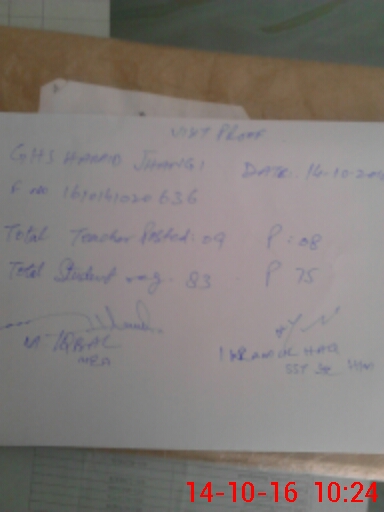 VISIT PROOF
GHS HAMID JHANGI DATE: 14-10-20
F no 1610161020636
Total Teacher Posted: 09 P: 08
Total Student reg. 83 P 75
M IQBAL IKRAM UL HAQ
MEA SST
14-10-16 10:24